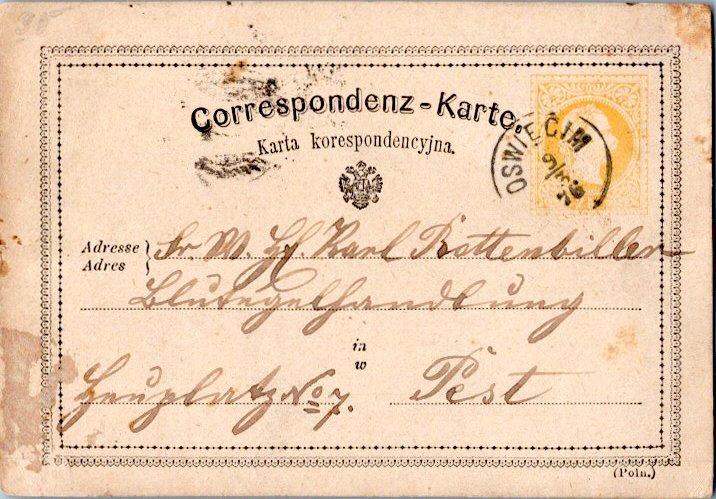 Correspondenz-Karte.
Karta korespondencyjna.
OSWIĘCIM
Adresse
Adres
Sr. W. H. Karl Rottenbiller
Blutegelhandlung
in
w
Heuplatz No 7. Pest
(Poln.)